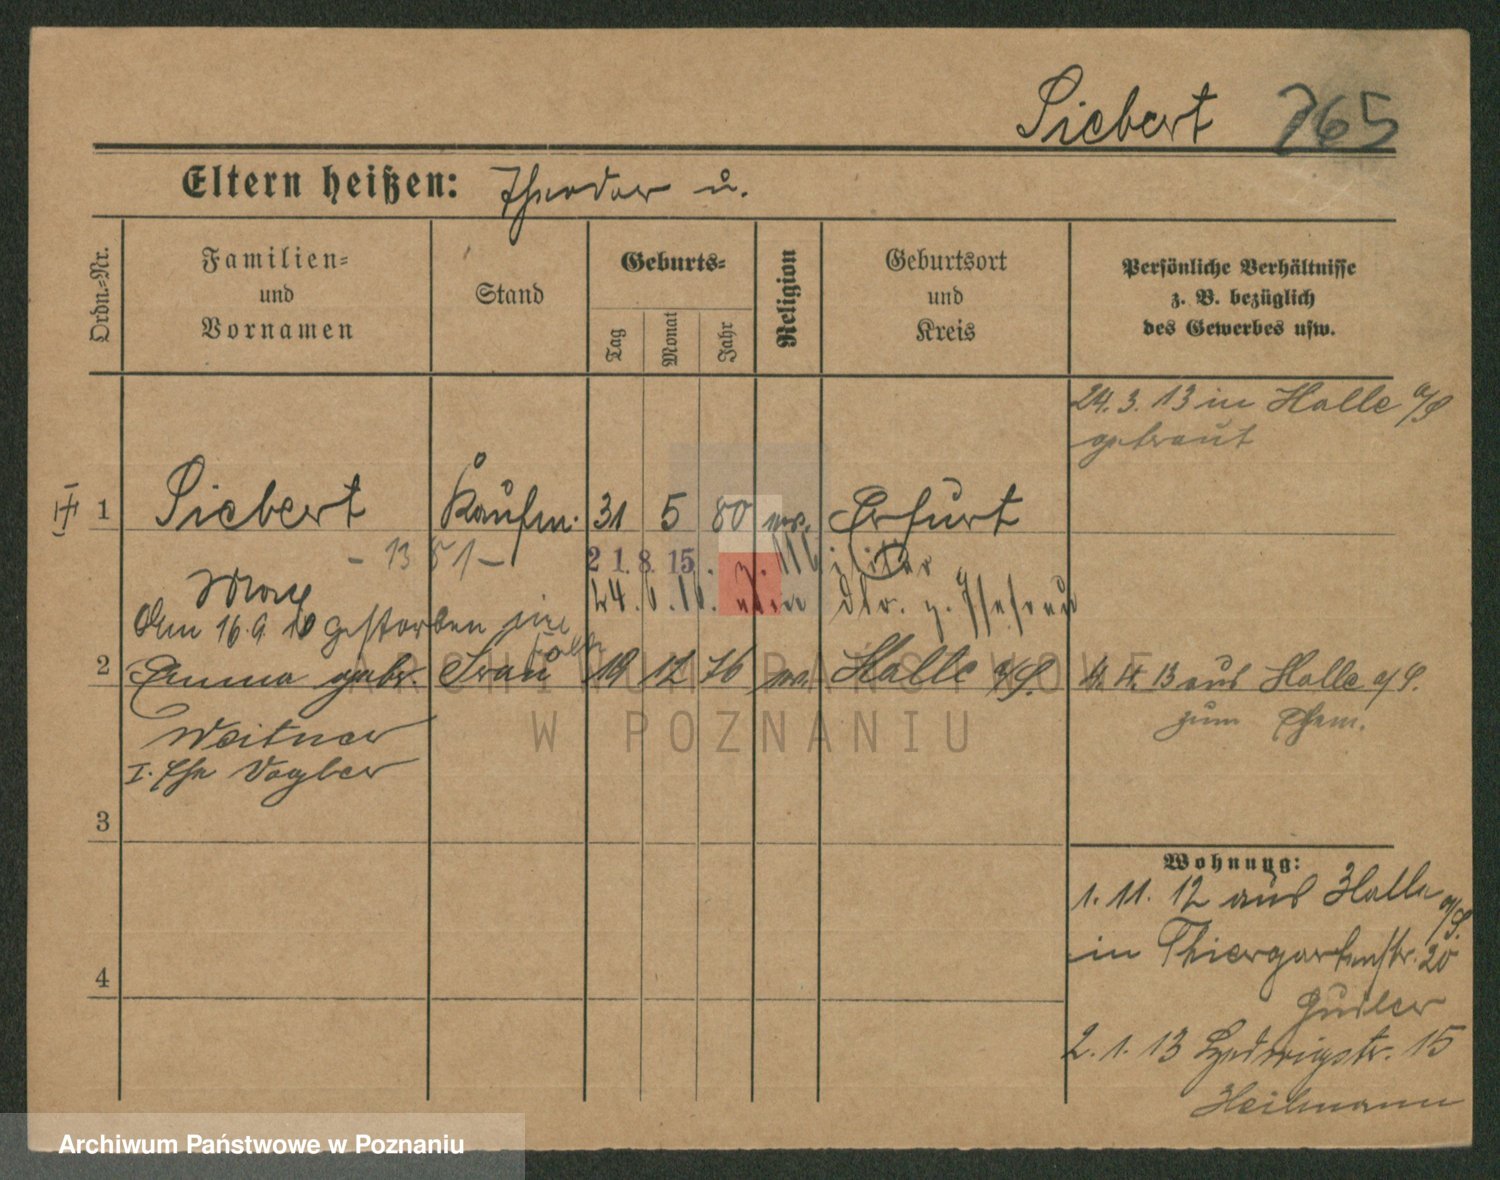 Siebert 765
Eltern heißen: Theodor u.
Ordn.-Nr.
Familien-
und
Vornamen
Stand
Geburts-
Tag
Monat
Jahr
Religion
Geburtsort
und
Kreis
Persönliche Verhältnisse
z. B. bezüglich
des Gewerbes usw.
24.3.13 in Halle a/S
getraut
1 Siebert Kaufm. 31 5 80 Erfurt
- 1351 -
21.8.15. z. Militär
Max
Am 16.9. gestorben
2 Emma gebr. Frau 19 12 76 Halle a/S. 4.4.13 aus Halle a/S.
zum Ehem.
Weitner
I. Ehe Vogler
3
Wohnung:
1.11.12 aus Halle a/S.
in Thiergartenstr. 20
4
2.1.13 Hedwigstr. 15
Heilmann
ARCHIWUM PAŃSTWOWE
W POZNANIU
Archiwum Państwowe w Poznaniu